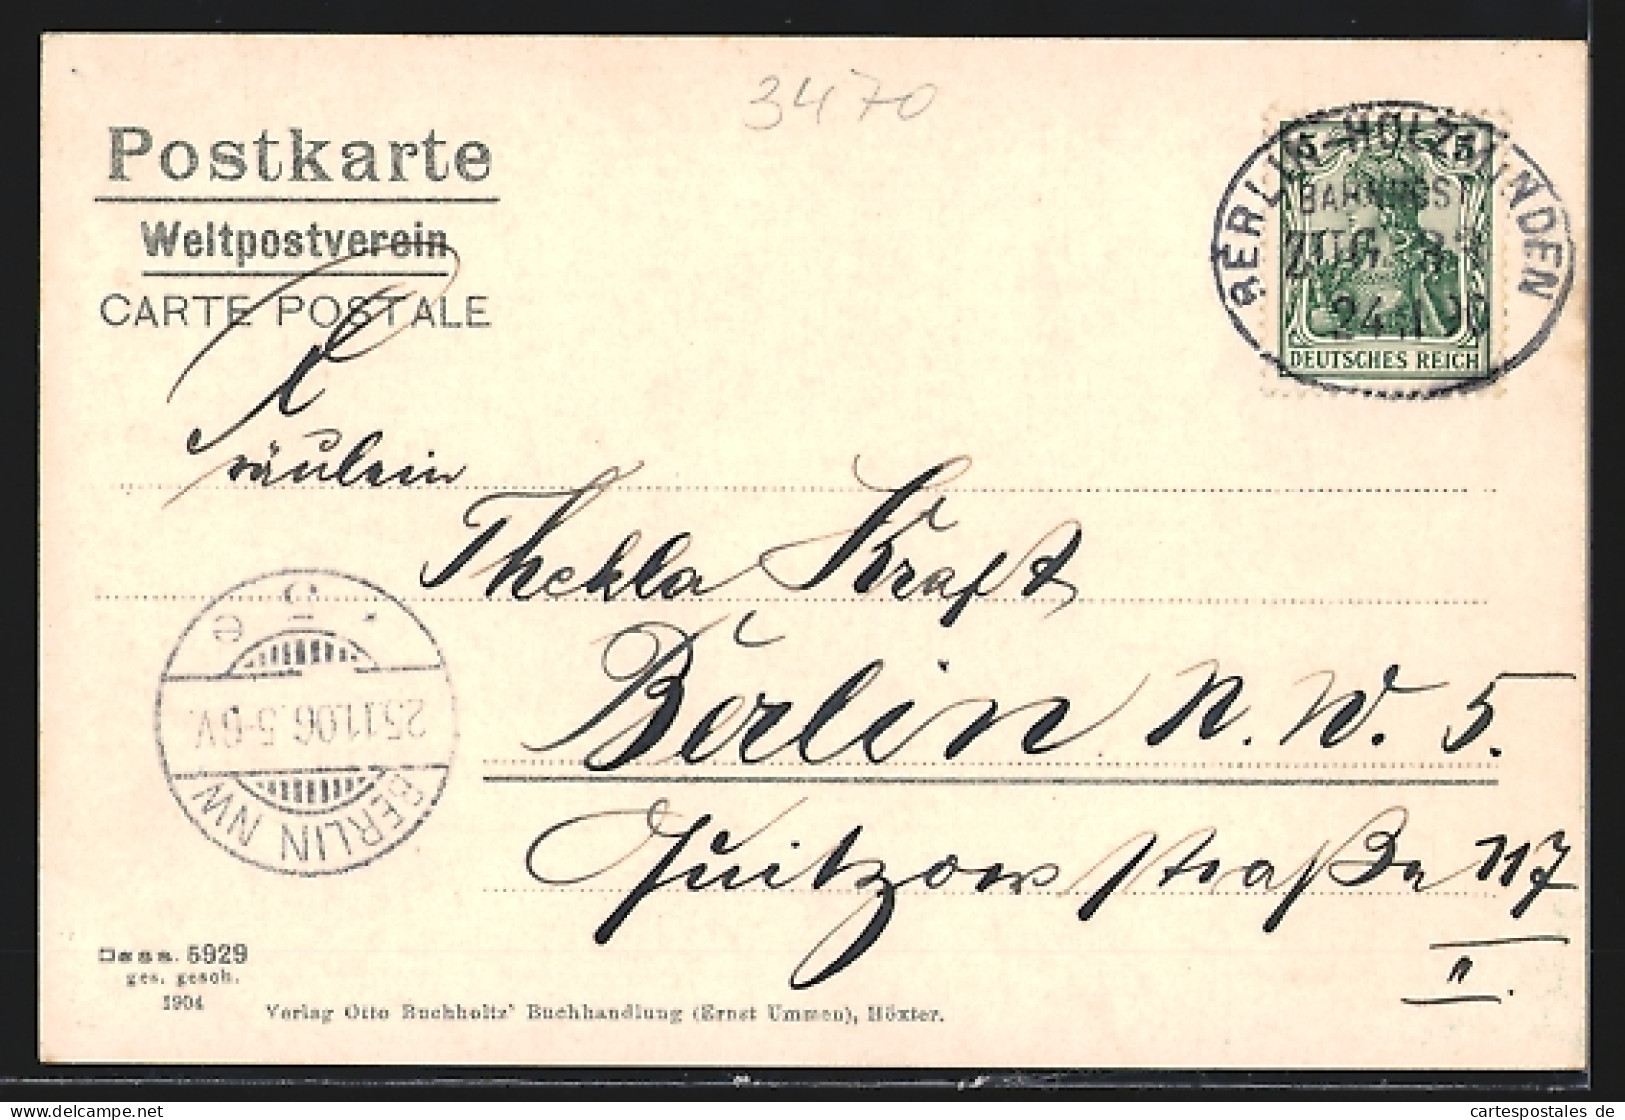 3470
Postkarte
Weltpostverein
CARTE POSTALE
BERLIN-HOLZMINDEN
BAHNPOST
ZUG
5 5
DEUTSCHES REICH
Fräulein
Thekla Kraft
Berlin N. W. 5.
Quitzowstraße 117
II.
25.11.06. 5-6V.
BERLIN NW
5929
ges. gesch.
1904
Verlag Otto Buchholtz' Buchhandlung (Ernst Ummen), Höxter.
cartespostales de